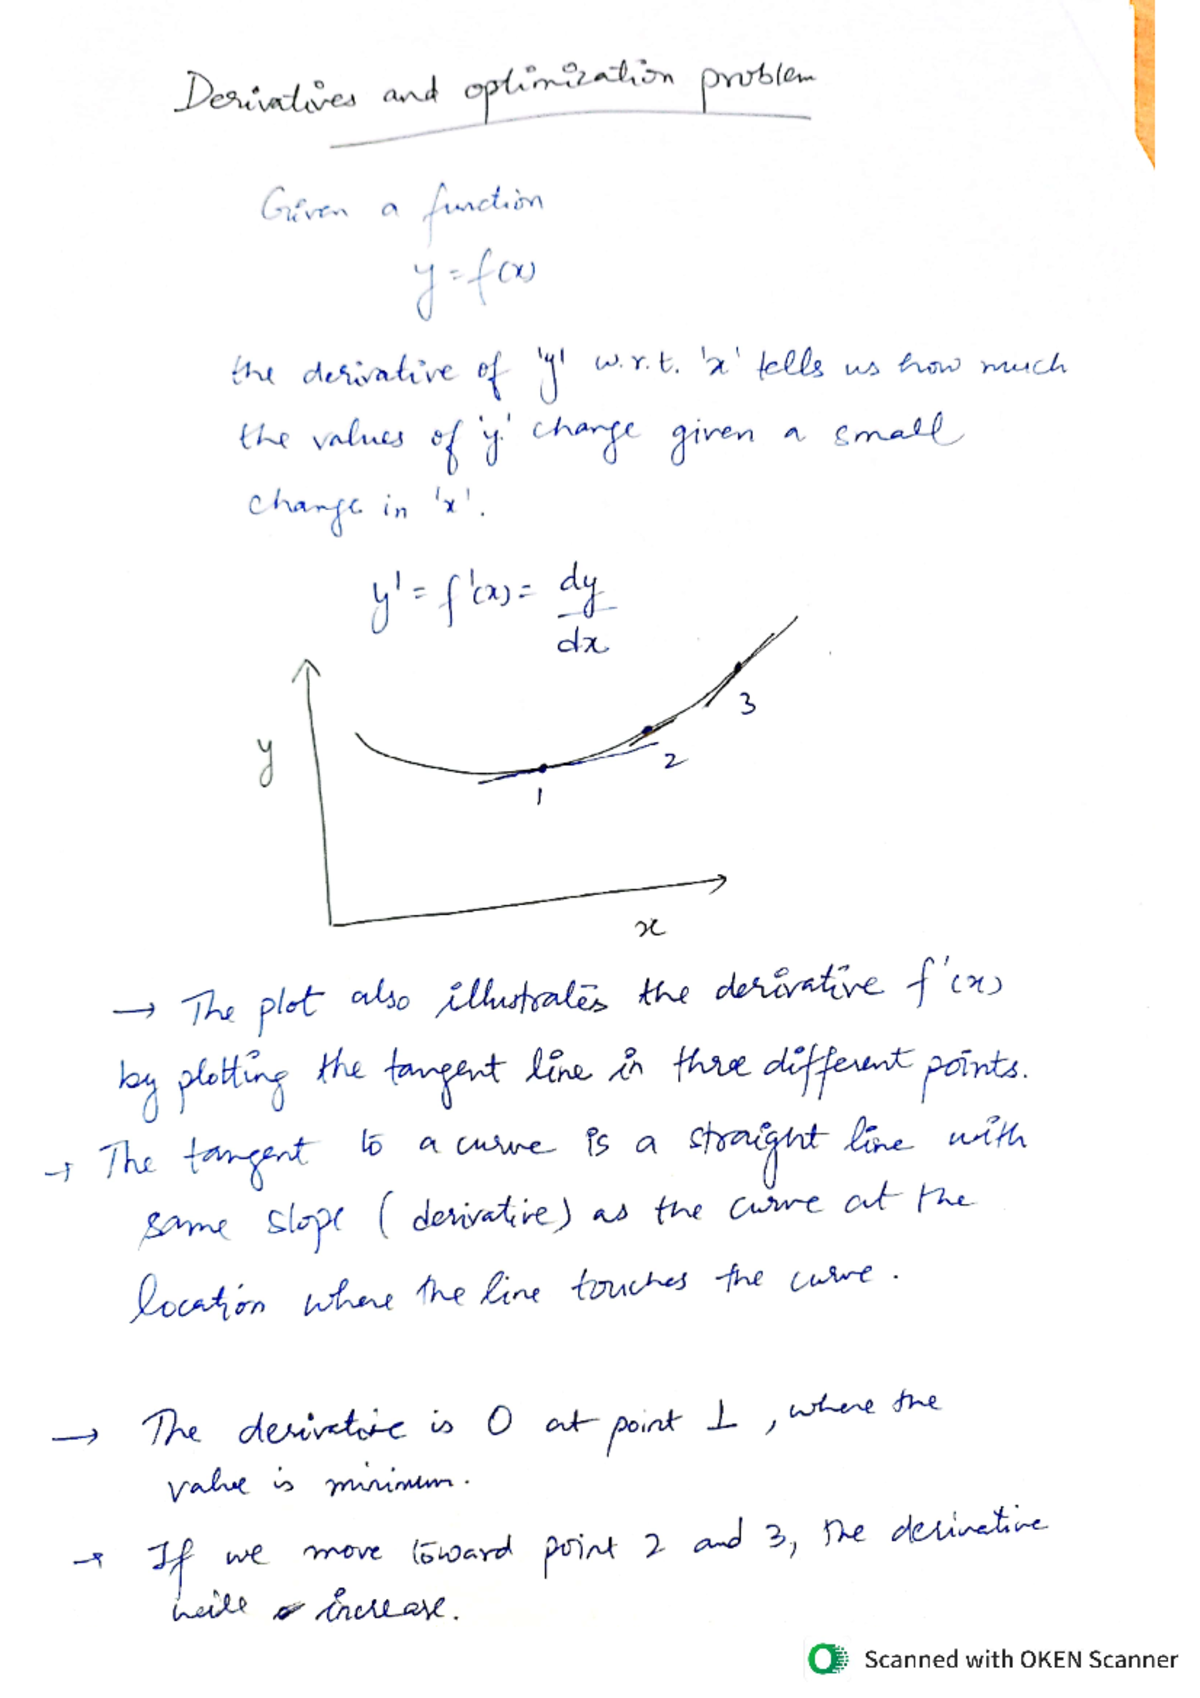 Derivatives and optimization problem
Given a function
y = f(x)
the derivative of 'y' w.r.t. 'x' tells us how much
the values of 'y' change given a small
change in 'x'.
y' = f'(x) = dy/dx
y
1
2
3
x
→ The plot also illustrates the derivative f'(x)
by plotting the tangent line in three different points.
→ The tangent to a curve is a straight line with
same slope (derivative) as the curve at the
location where the line touches the curve.
→ The derivative is 0 at point 1, where the
value is minimum.
→ If we move toward point 2 and 3, the derivative
will increase.
Scanned with OKEN Scanner